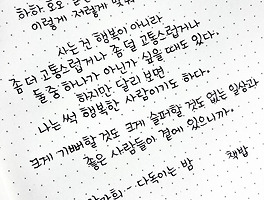 하하 호호
이렇게 저렇게
사는 건 행복이 아니라
좀 더 고통스럽거나 좀 덜 고통스럽거나
둘 중 하나가 아닌가 싶을 때도 있다.
하지만 달리 보면
나는 썩 행복한 사람이기도 하다.
크게 기뻐할 것도 크게 슬퍼할 것도 없는 일상과
좋은 사람들이 곁에 있으니까.
- 다독이는 밤 책밥